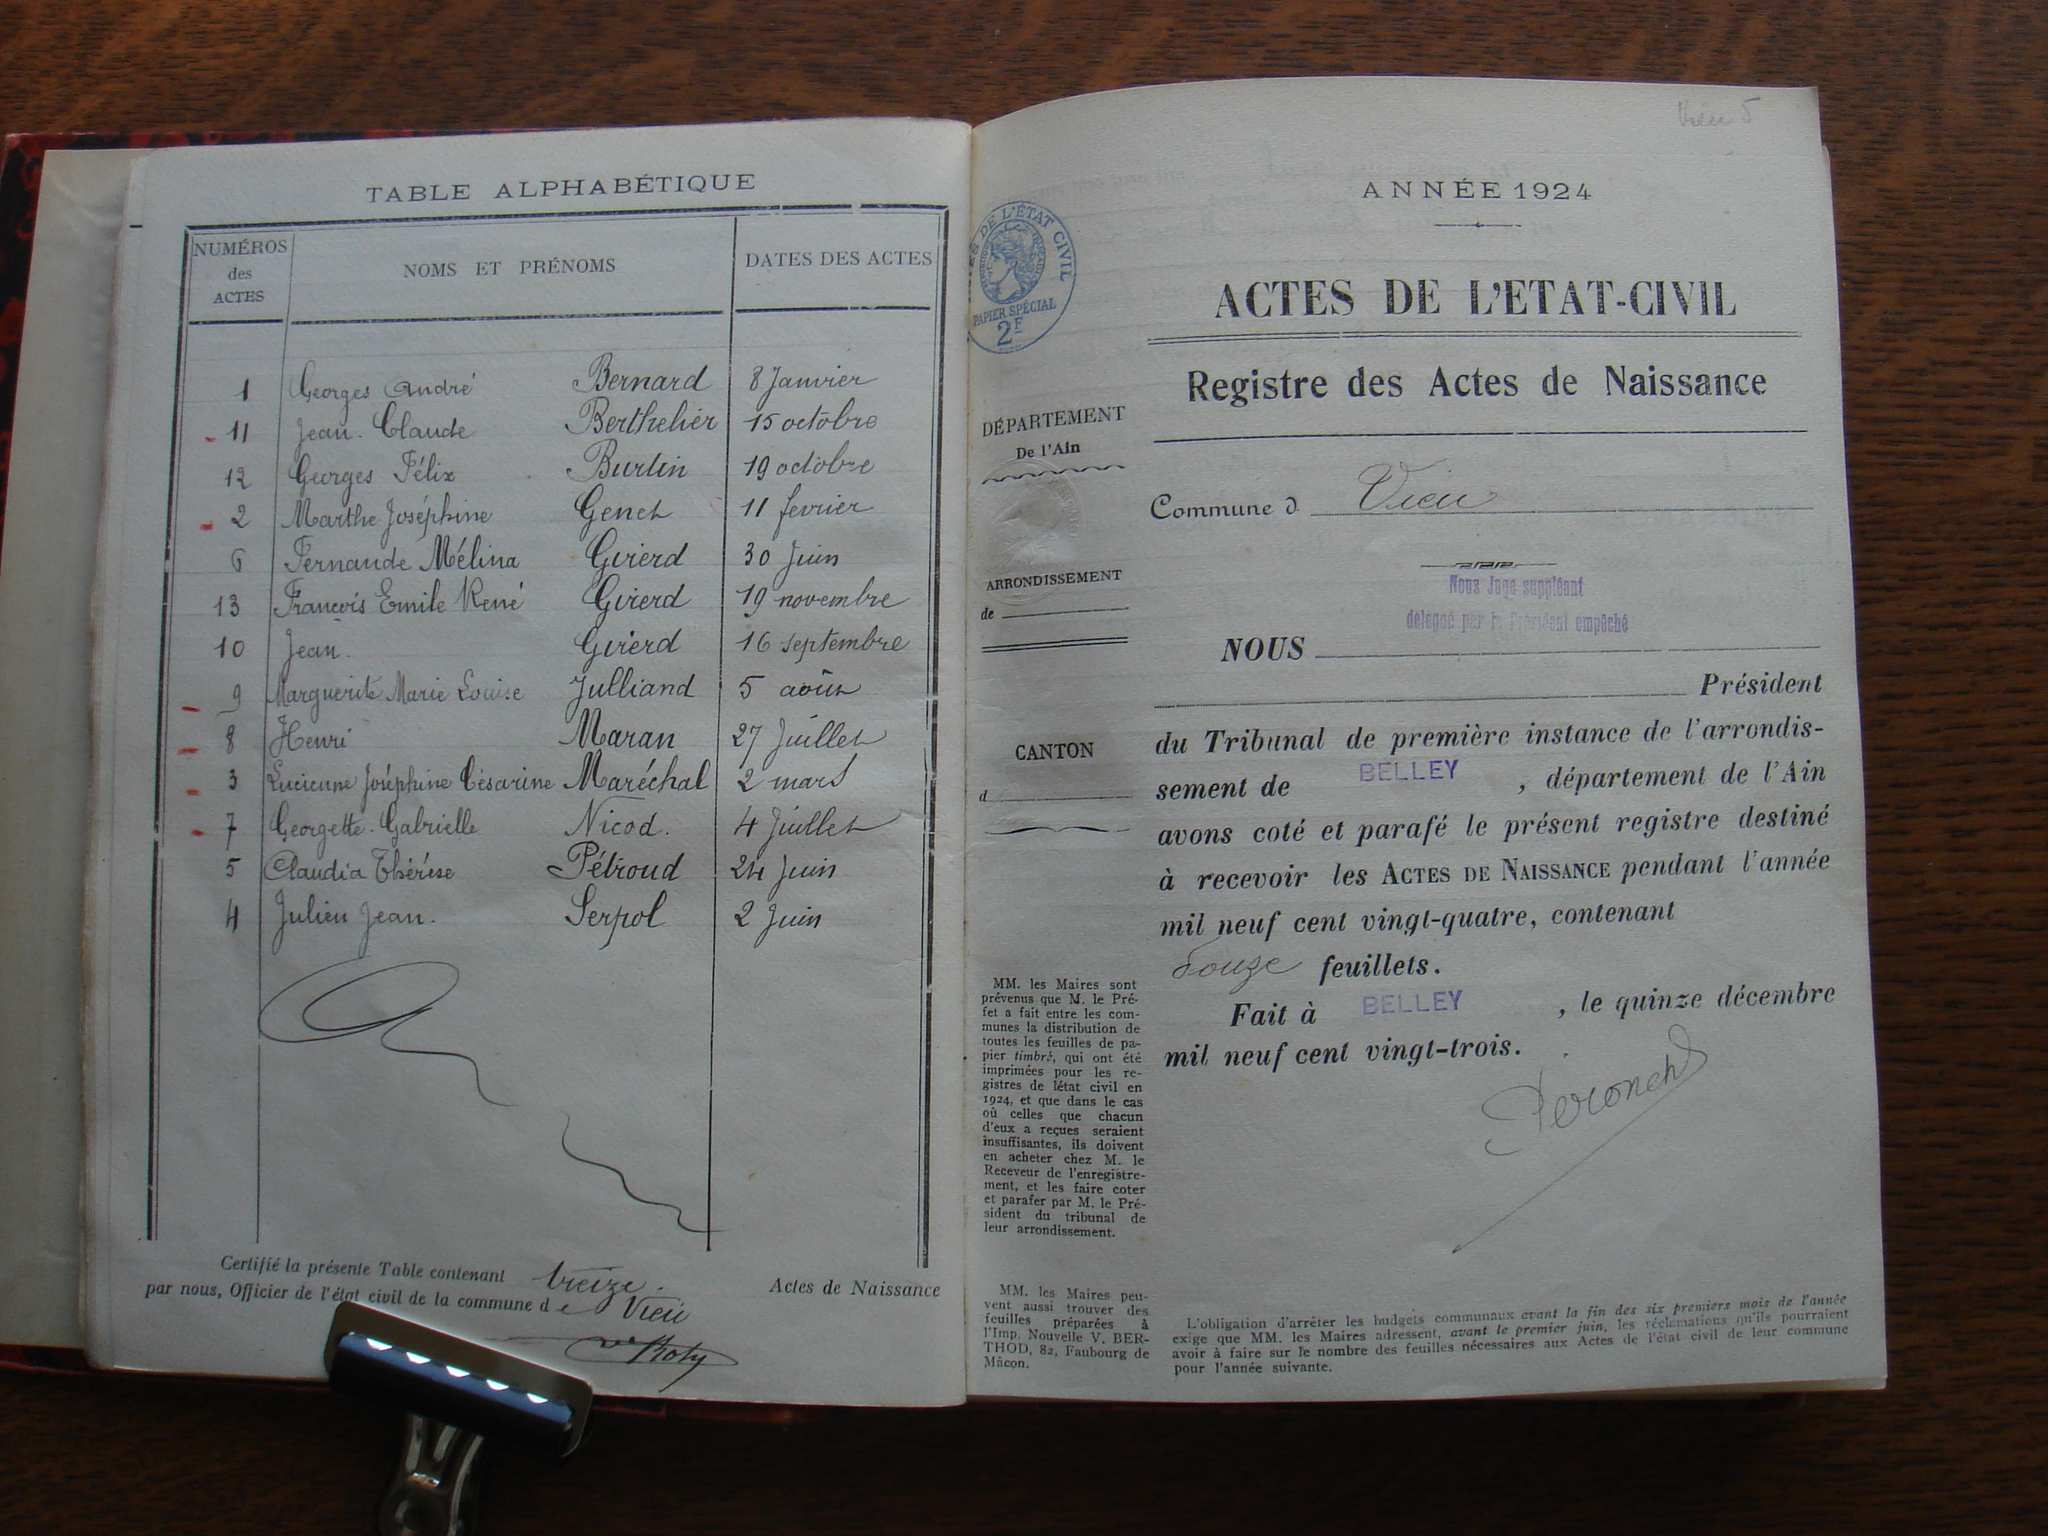 TABLE ALPHABÉTIQUE
NUMÉROS des ACTES NOMS ET PRÉNOMS DATES DES ACTES
1 Georges André Bernard 8 Janvier
11 Jean-Claude Berthelier 15 octobre
12 Georges Félix Burtin 19 octobre
2 Marthe Joséphine Genet 11 fevrier
6 Fernande Mélina Girerd 30 Juin
13 François Emile René Girerd 19 novembre
10 Jean. Girerd 16 septembre
9 Marguerite Marie Louise Julliand 5 août
8 Henri Maran 27 Juillet
3 Lucienne Joséphine Césarine Maréchal 2 mars
7 Georgette-Gabrielle Nicod. 4 Juillet
5 Claudia Thérèse Pétroud 24 Juin
4 Julien Jean. Serpol 2 Juin
Certifié la présente Table contenant treize. Actes de Naissance
par nous, Officier de l'état civil de la commune de Vieu
Vieu 5
ANNÉE 1924
DE L'ÉTAT CIVIL
PAPIER SPÉCIAL
2F
ACTES DE L'ETAT-CIVIL
Registre des Actes de Naissance
DÉPARTEMENT
De l'Ain
Commune d Vieu
ARRONDISSEMENT
de
Nous Juge suppléant
délégué par le Président empêché
NOUS
Président
CANTON
d
du Tribunal de première instance de l'arrondis-
sement de BELLEY , département de l'Ain
avons coté et parafé le présent registre destiné
à recevoir les ACTES DE NAISSANCE pendant l'année
mil neuf cent vingt-quatre, contenant
douze feuillets.
Fait à BELLEY , le quinze décembre
mil neuf cent vingt-trois.
MM. les Maires sont
prévenus que M. le Pré-
fet a fait entre les com-
munes la distribution de
toutes les feuilles de pa-
pier timbré, qui ont été
imprimées pour les re-
gistres de l'état civil en
1924, et que dans le cas
où celles que chacun
d'eux a reçues seraient
insuffisantes, ils doivent
en acheter chez M. le
Receveur de l'enregistre-
ment, et les faire coter
et parafer par M. le Pré-
sident du tribunal de
leur arrondissement.
MM. les Maires peu-
vent aussi trouver des
feuilles préparées à
l'Imp. Nouvelle V. BER-
THOD, 82, Faubourg de
Mâcon.
L'obligation d'arrêter les budgets communaux avant la fin des six premiers mois de l'année
exige que MM. les Maires adressent, avant le premier juin, les réclamations qu'ils pourraient
avoir à faire sur le nombre des feuilles nécessaires aux Actes de l'état civil de leur commune
pour l'année suivante.